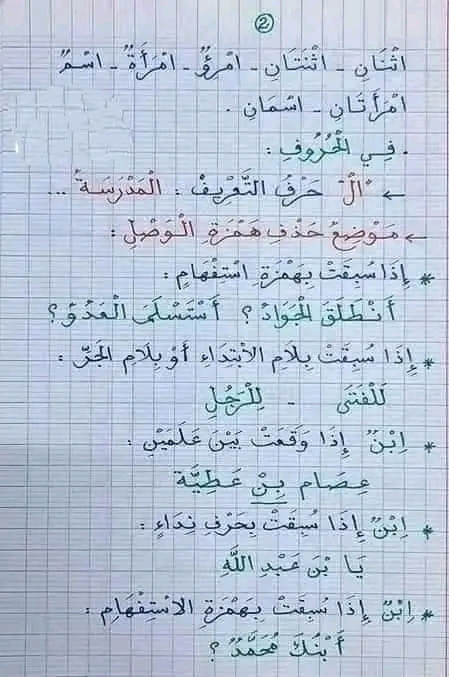 ②
اثْنَانِ - اثْنَتَانِ - امْرُؤٌ - امْرَأَةٌ - اسْمٌ
امْرَأَتَانِ - اسْمَانِ .
. فِي الْحُرُوفِ :
← "الْ" حَرْفُ التَّعْرِيفْ : الْمَدْرَسَةُ ...
← مَوْضِعُ حَذْفِ هَمْزَةِ الْوَصْلِ :
* إِذَا سُبِقَتْ بِهَمْزَةِ اسْتِفْهَامٍ :
أَنْطَلَقَ الْجَوَادُ ؟ أَسْتَسْلَمَ الْعَدُوُّ ؟
* إِذَا سُبِقَتْ بِلَامِ الْابْتِدَاءِ أَوْ بِلَامِ الْجَرِّ :
لَلْفَتَى - لِلْرَّجُلِ
* اِبْنٌ إِذَا وَقَعَتْ بَيْنَ عَلَمَيْنِ :
عِصَام بِنْ عَطِيَّة
* اِبْنٌ إِذَا سُبِقَتْ بِحَرْفِ نِدَاءٍ :
يَا بْنَ عَبْدِ اللَّهِ
* اِبْنٌ إِذَا سُبِقَتْ بِهَمْزَةِ الاسْتِفْهَامِ :
أَبْنُكَ مُحَمَّدٌ ؟